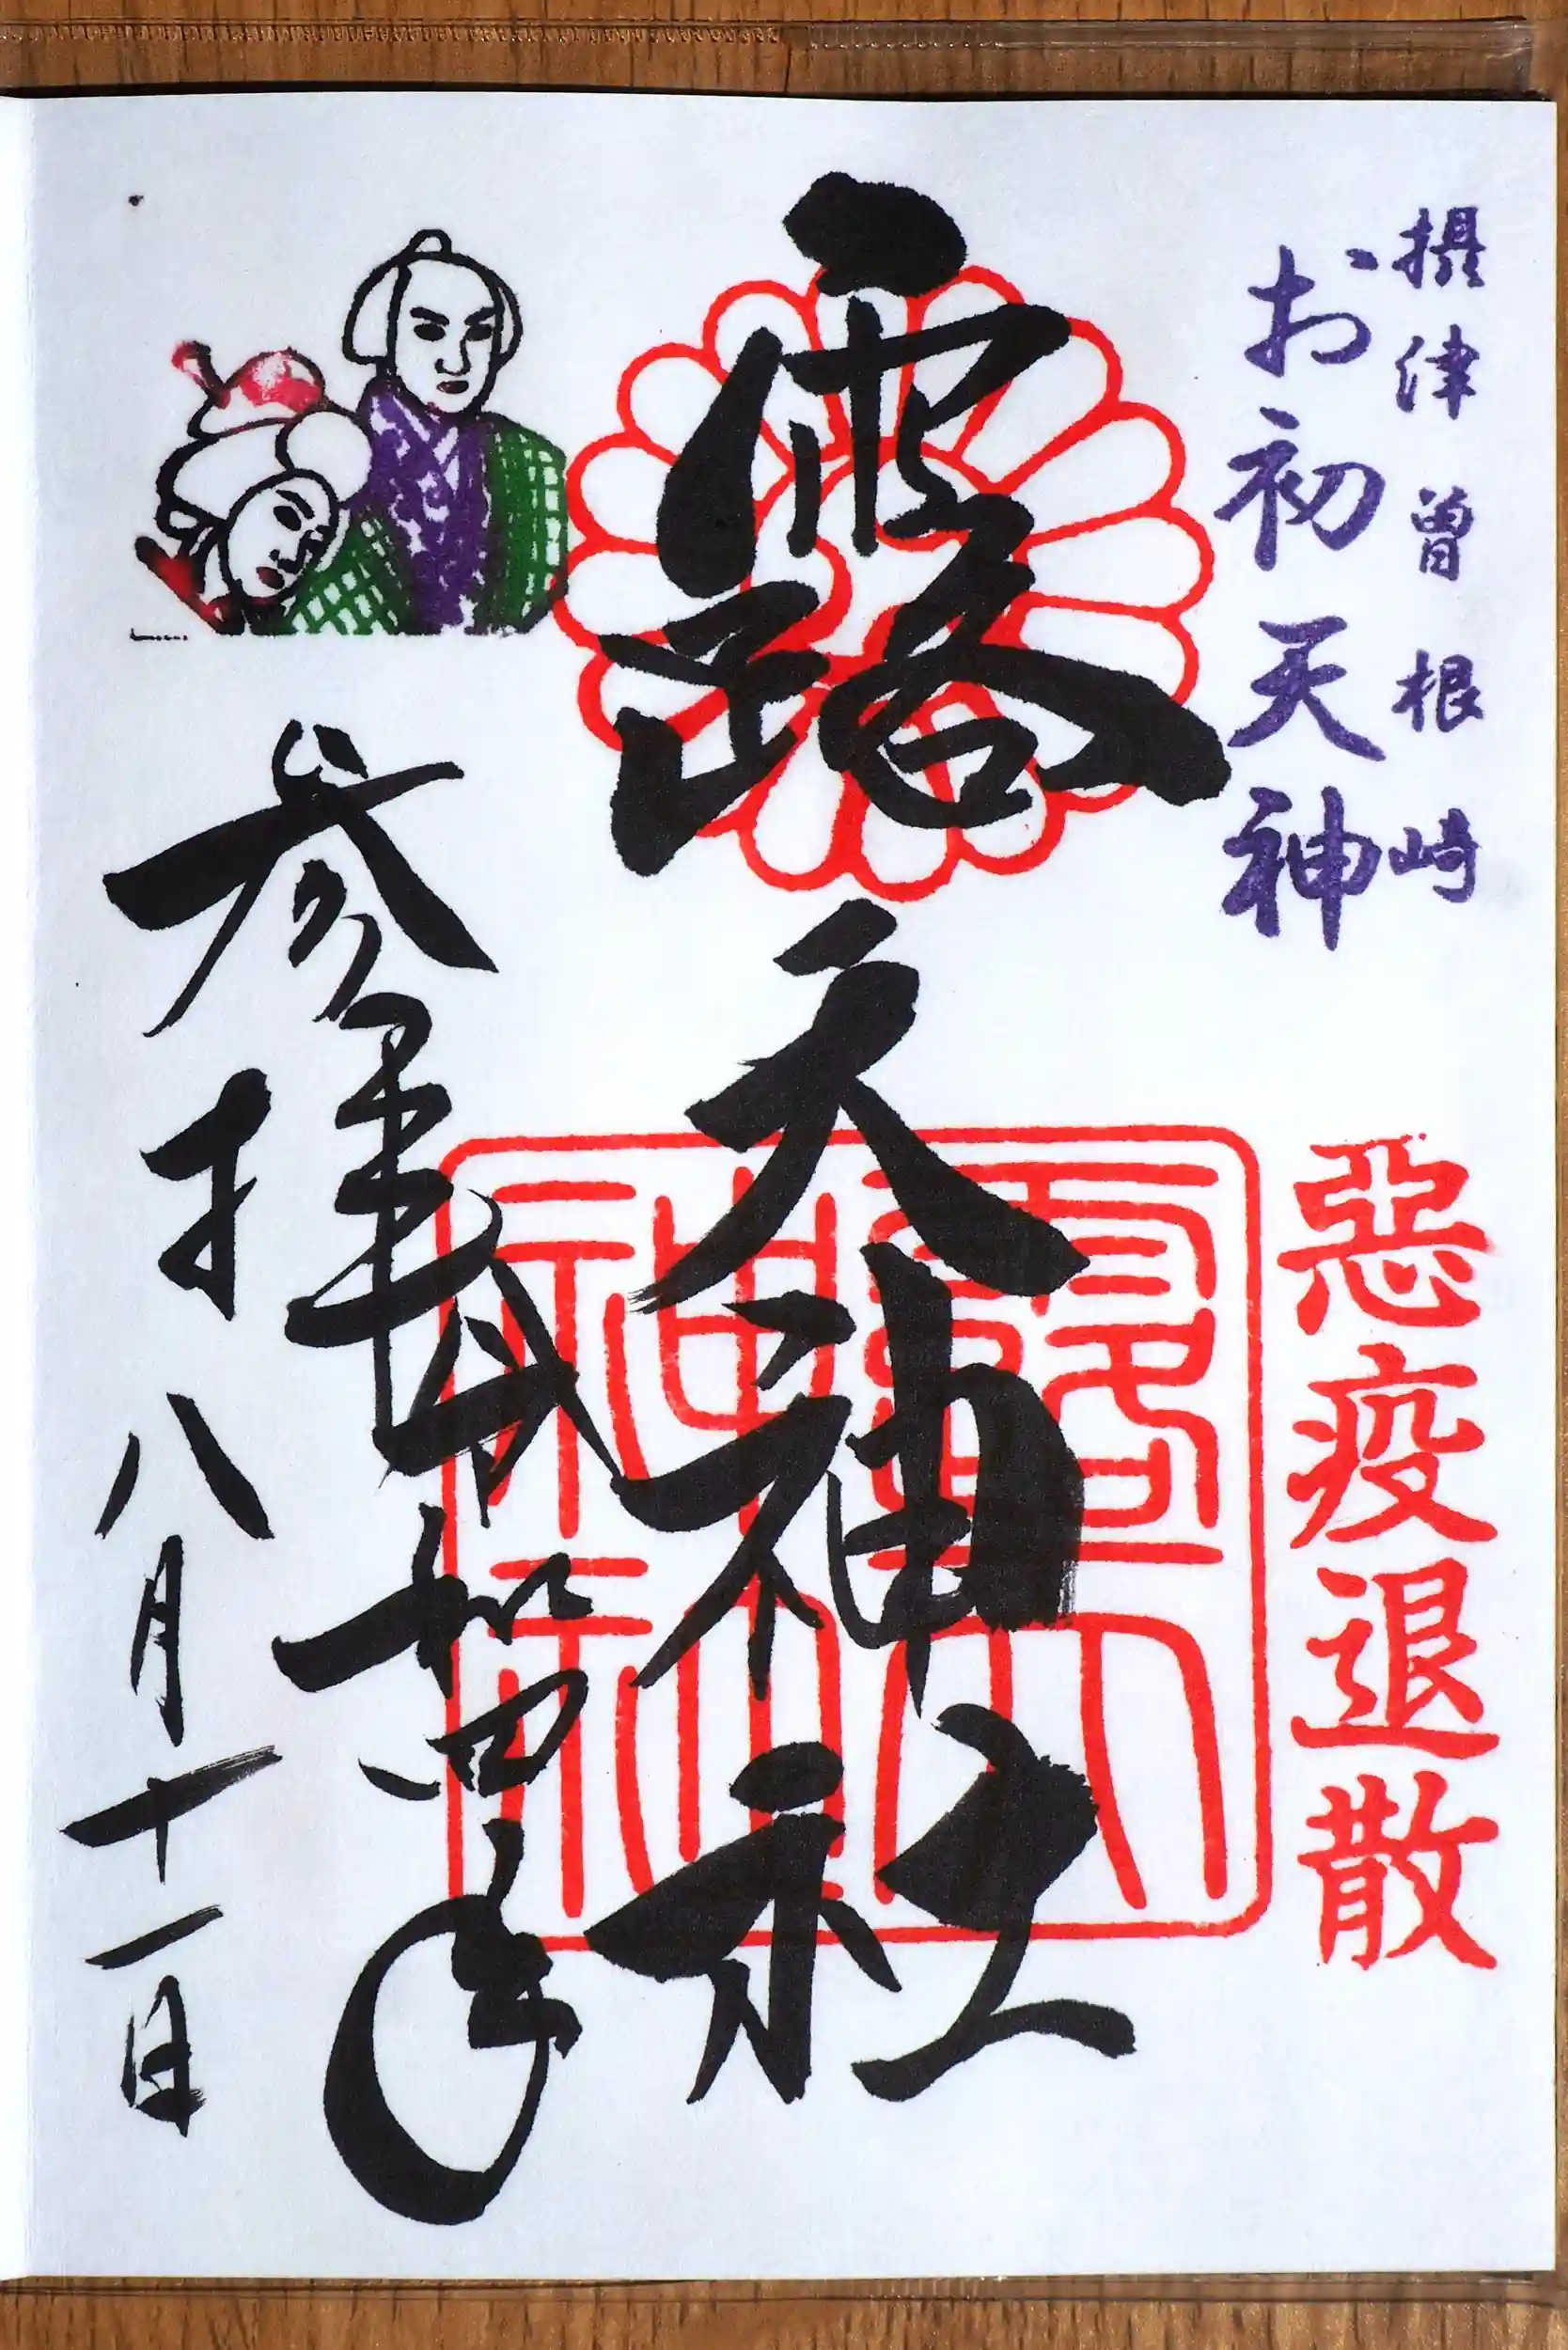 摂津曽根崎
お初天神
惡疫退散
露天神社
露天神社
参拝
令和四年
八月十一日